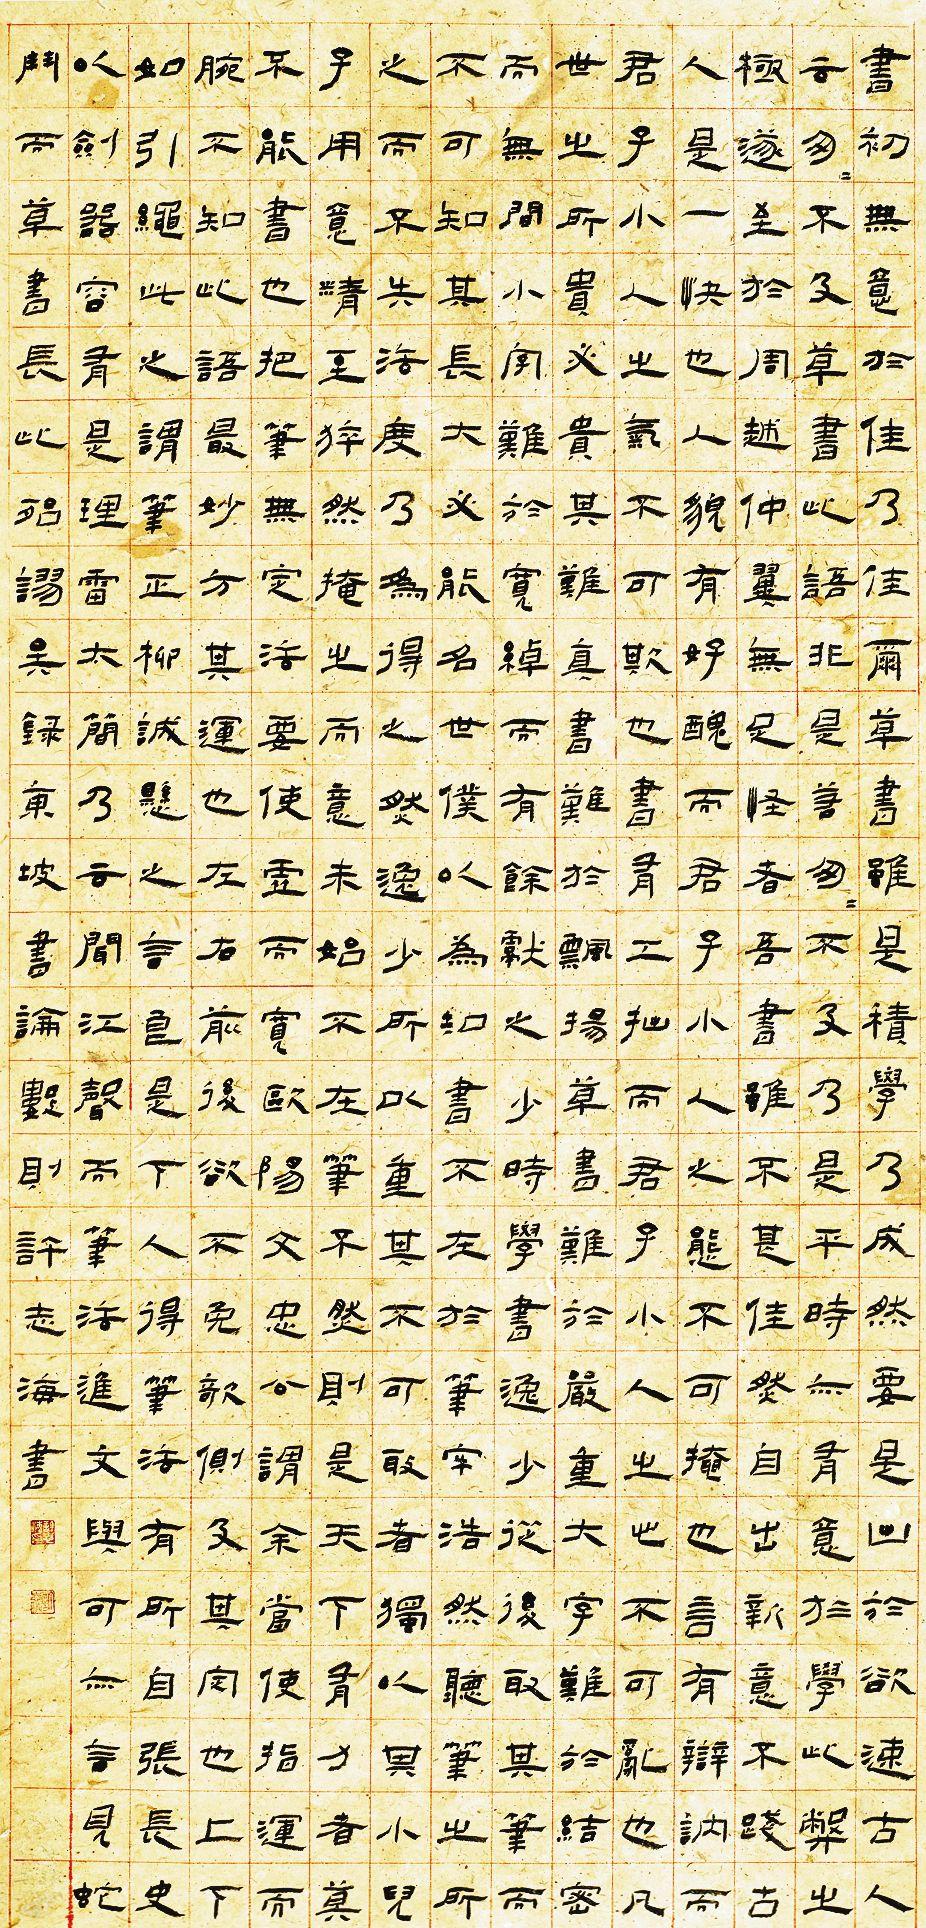 書初無意於佳乃佳爾草書雖是積學乃成然要是出於欲速古人
云匆=不及草書此語非是若匆=不及乃是平時亦有意於學此弊之
極遂至於周越仲翼無足怪者吾書雖不甚佳然自出新意不踐古
人是一快也人貌有好醜而君子小人之態不可掩也言有辯訥而
君子小人之氣不可欺也書有工拙而君子小人之心不可亂也凡
世之所貴必貴其難真書難於飄揚草書難於嚴重大字難於結密
而無間小字難於寬綽而有餘獻之少時學書逸少從後取其筆而
不可知其長大必能名世僕以為知書不在於筆牢浩然聽筆之所
之而不失法度乃為得之然逸少所以重其不可取者獨以其小兒
子用意精至猝然掩之而意未始不在筆不然則是天下有力者莫
不能書也把筆無定法要使虛而寬歐陽文忠公謂余當使指運而
腕不知此語最妙方其運也左右前後欲不免欹側及其定也上下
如引繩此之謂筆正柳誠懸之言良是下人得筆法有所自張長史
以劍器容有是理雷太簡乃云聞江聲而筆法進文與可亦言見蛇
鬥而草書長此殆謬矣錄東坡書論數則許志海書